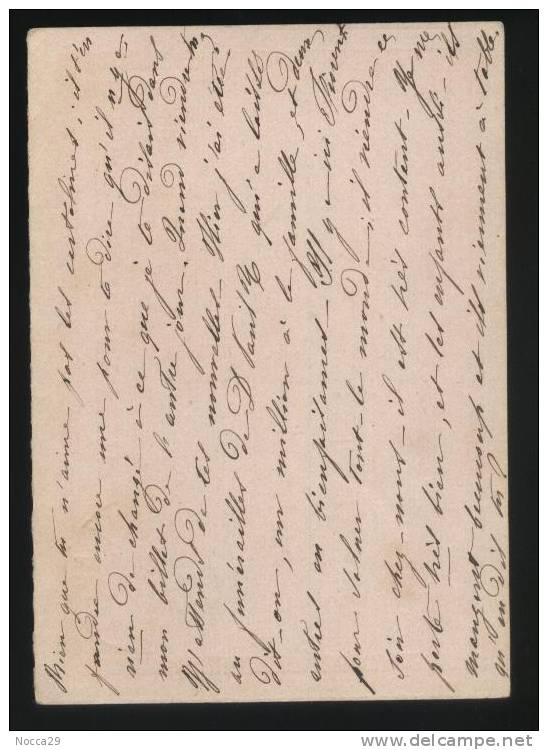 Bien que tu n'aime pas les cartolines, il t'en
faudra encore une pour te dire qu'il n'y a
rien de changé à ce que je te disait dans
mon billet de l'autre jour. Quand viendras-tu
M'attendt de tes nouvelles. Hier j'ai été
au funérailles de D. qui a laissé
dit-on, un million à la famille, et deux
entiers en bienfaisances. Il y a ici
pour saluer tout-le monde; il viendra ce
soir chez-nous; il est très content. Je me
porte très bien, et les enfants aussi; ils
mangent beaucoup et ils viennent à table.
qu'en dis tu?
Nocca29
www.delcampe.net